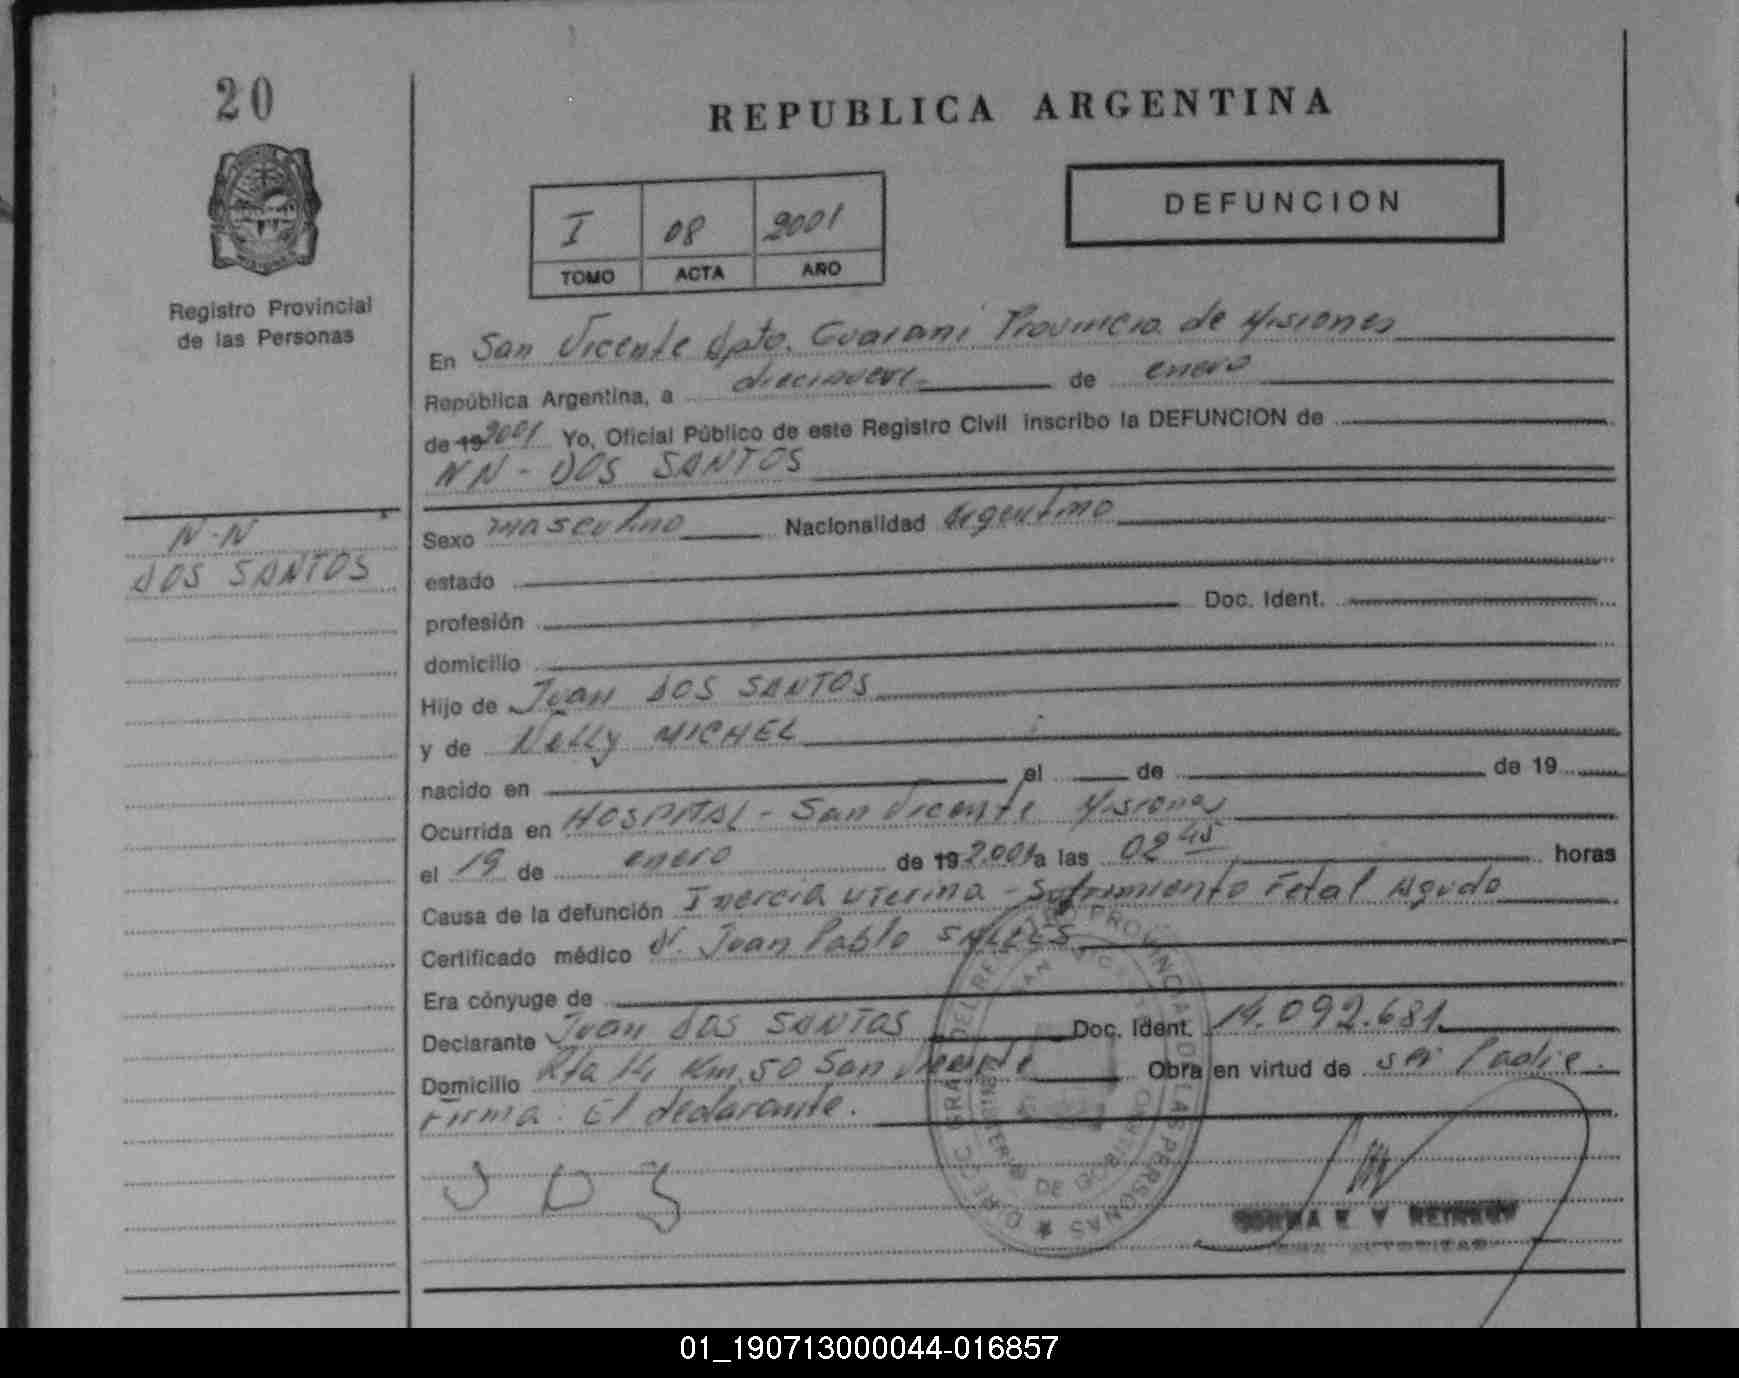 20
REPUBLICA ARGENTINA
DEFUNCION
I 08 2001
TOMO ACTA AÑO
Registro Provincial
de las Personas
En San Vicente Dpto. Guarani Provincia de Misiones
República Argentina, a diecinueve de enero
de 19 2001 Yo, Oficial Público de este Registro Civil inscribo la DEFUNCION de
NN - DOS SANTOS
N-N
DOS SANTOS
Sexo masculino Nacionalidad Argentino
estado
profesión Doc. Ident.
domicilio
Hijo de Juan DOS SANTOS
y de Nelly MICHEL
nacido en el de de 19
Ocurrida en HOSPITAL - San Vicente Misiones
el 19 de enero de 19 2001 a las 02 45 horas
Causa de la defunción Inercia uterina - Sufrimiento Fetal Agudo
Certificado médico dr. Juan Pablo
Era cónyuge de
Declarante Juan DOS SANTOS Doc. Ident. 14.092.681
Domicilio Rta 14 Km 50 San Vicente Obra en virtud de ser Padre.
Firma: El declarante.
J D S
DIRECC. GRAL. DEL REGISTRO PROVINCIAL DE LAS PERSONAS
SAN VICENTE
MINISTERIO DE GOBIERNO
01_190713000044-016857